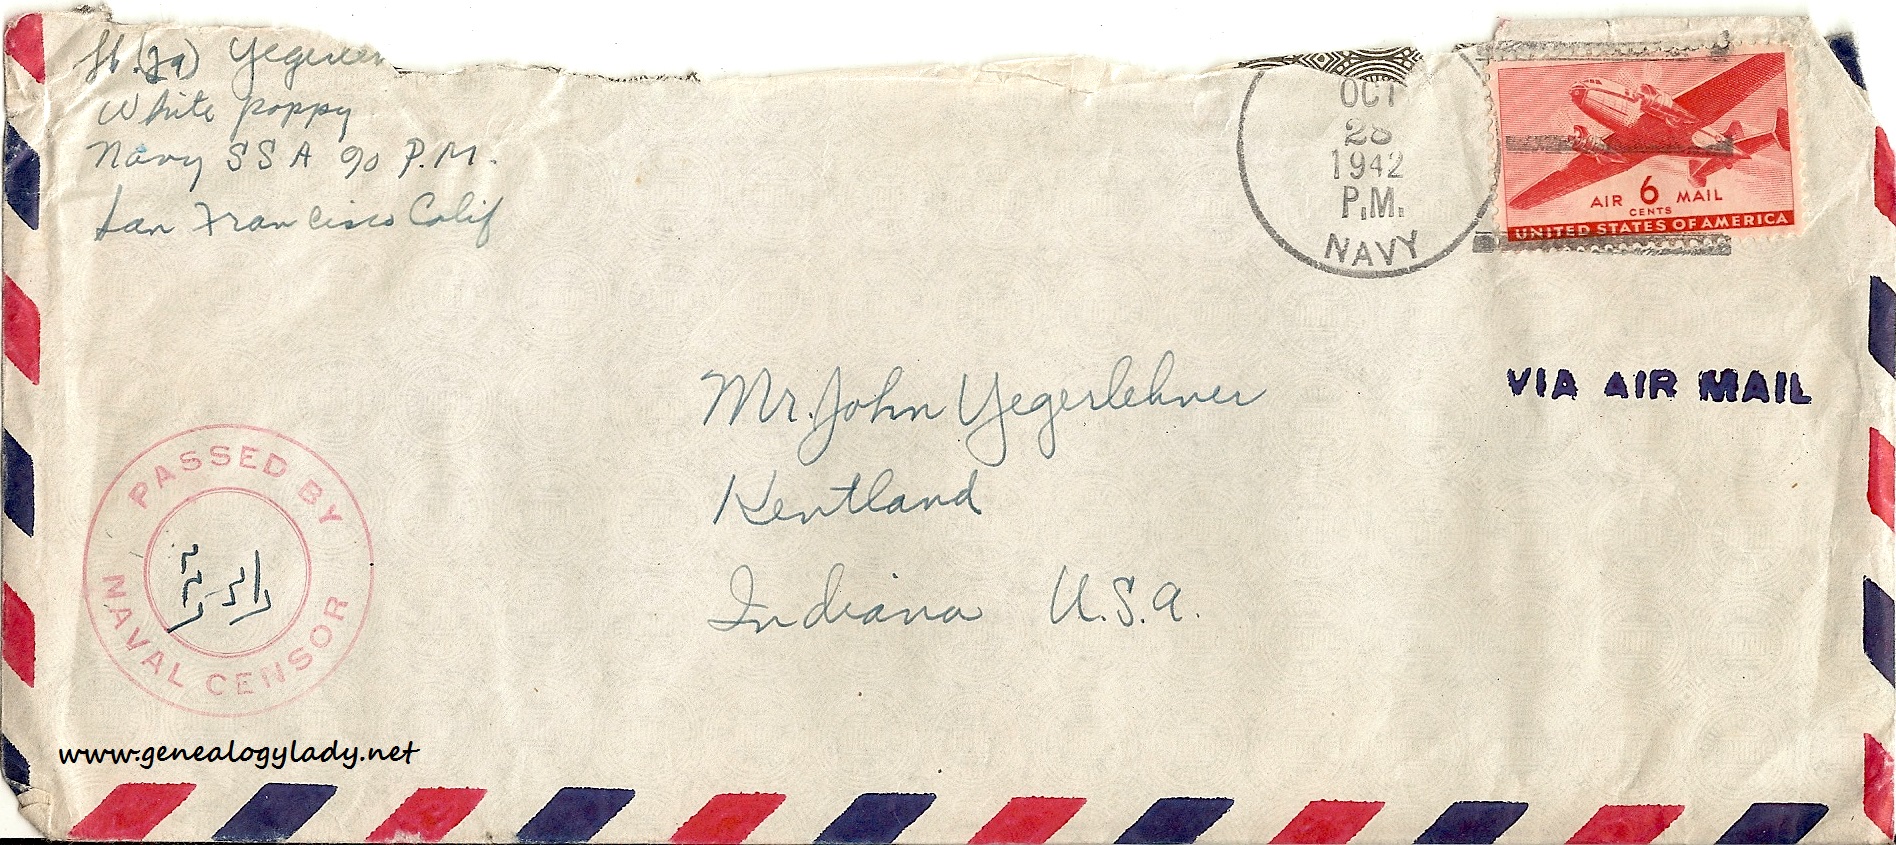 Lt.(jg)
White Poppy
Navy SSA 90 P.M.
San Francisco Calif
OCT
28
1942
P.M.
NAVY
AIR 6 MAIL
CENTS
UNITED STATES OF AMERICA
VIA AIR MAIL
Mr. John Yegerlehner
Kentland
Indiana U.S.A.
PASSED BY
NAVAL CENSOR
www.genealogylady.net